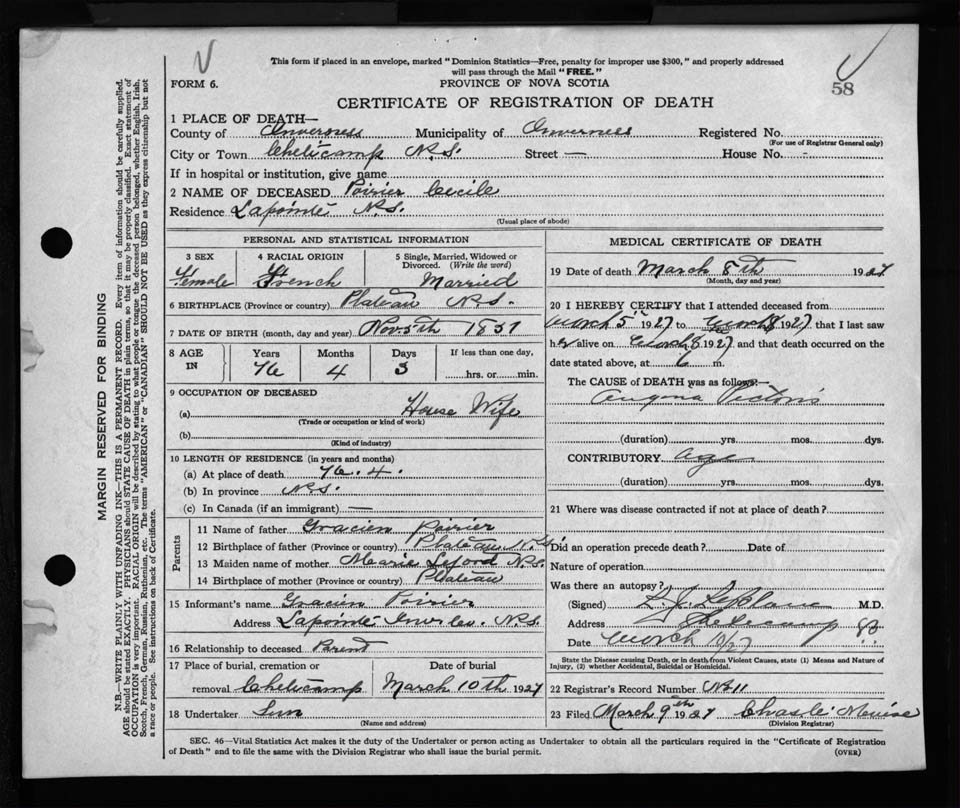 This form if placed in an envelope, marked "Dominion Statistics—Free, penalty for improper use $300," and properly addressed
will pass through the Mail "FREE."
58
FORM 6.
PROVINCE OF NOVA SCOTIA
CERTIFICATE OF REGISTRATION OF DEATH
1 PLACE OF DEATH—
County of Inverness Municipality of Inverness Registered No.
(For use of Registrar General only)
City or Town Cheticamp N.S. Street — House No. -
If in hospital or institution, give name
2 NAME OF DECEASED Poirier Cecile
Residence Lapointe N.S.
(Usual place of abode)
PERSONAL AND STATISTICAL INFORMATION
3 SEX 4 RACIAL ORIGIN 5 Single, Married, Widowed or Divorced. (Write the word)
Female French Married
6 BIRTHPLACE (Province or country) Plateau N.S.
7 DATE OF BIRTH (month, day and year) Nov. 5th 1851
8 AGE IN Years Months Days If less than one day,
76 4 3 hrs. or min.
9 OCCUPATION OF DECEASED
(a) House Wife
(Trade or occupation or kind of work)
(b)
(Kind of industry)
10 LENGTH OF RESIDENCE (in years and months)
(a) At place of death 76. 4.
(b) In province N.S.
(c) In Canada (if an immigrant) —
Parents
11 Name of father Gracien Poirier
12 Birthplace of father (Province or country) Plateau N.S.
13 Maiden name of mother Marie N.S.
14 Birthplace of mother (Province or country) Plateau
15 Informant's name Gracien Poirier
Address Lapointe N.S.
16 Relationship to deceased Parent
17 Place of burial, cremation or Date of burial
removal Cheticamp March 10th 1927
18 Undertaker
(Name and address)
MEDICAL CERTIFICATE OF DEATH
19 Date of death March 8th 1927
(Month, day and year)
20 I HEREBY CERTIFY that I attended deceased from
March 5th 1927 to March 8 1927 that I last saw
her alive on March 8 1927 and that death occurred on the
date stated above, at 6 m.
The CAUSE of DEATH was as follows:—
Angina Pectoris
(duration) yrs. mos. dys.
CONTRIBUTORY age
(duration) yrs. mos. dys.
21 Where was disease contracted if not at place of death?
Did an operation precede death? Date of
Nature of operation
Was there an autopsy?
(Signed) LeBlanc M.D.
Address Cheticamp
Date March 10/27
State the Disease causing Death, or in death from Violent Causes, state (1) Means and Nature of
Injury, (2) whether Accidental, Suicidal or Homicidal.
22 Registrar's Record Number No 11
23 Filed March 9th 1927
(Division Registrar)
SEC. 46—Vital Statistics Act makes it the duty of the Undertaker or person acting as Undertaker to obtain all the particulars required in the "Certificate of Registration
of Death" and to file the same with the Division Registrar who shall issue the burial permit.
(OVER)
MARGIN RESERVED FOR BINDING
N.B.—WRITE PLAINLY WITH UNFADING INK—THIS IS A PERMANENT RECORD. Every item of information should be carefully supplied.
AGE should be stated EXACTLY. PHYSICIANS should STATE CAUSE OF DEATH in plain terms, so that it may be properly classified. Exact statement of
OCCUPATION is very important. RACIAL ORIGIN will be described by stating to what people or tongue the deceased person belonged, whether English, Irish,
Scotch, French, German, Russian, Ruthenian, etc. The terms "AMERICAN" or "CANADIAN" SHOULD NOT BE USED as they express citizenship but not
a race or people. See instructions on back of Certificate.